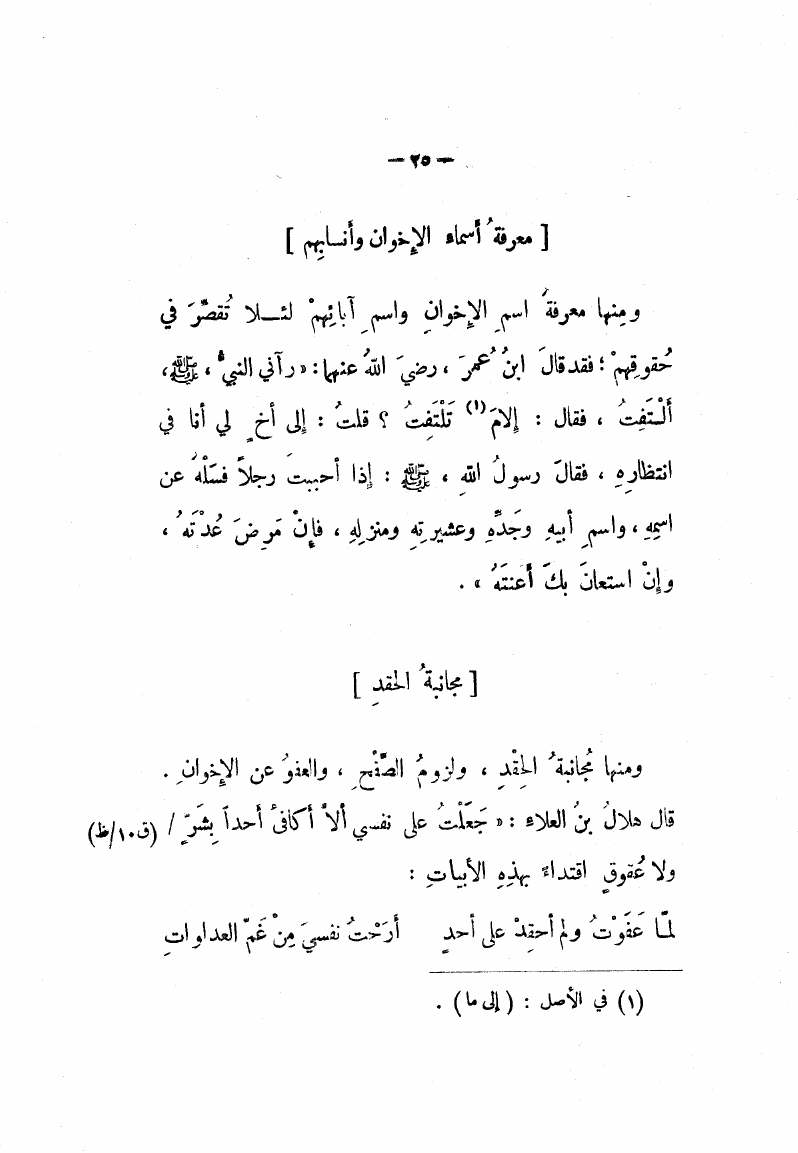 — ٢٥ —
[ معرفةُ أسماء الإخوان وأنسابِهم ]
ومِنها معرفةُ اسمِ الإخوانِ واسمِ آبائِهمْ لئـلا تُقصِّرَ في
حُقوقِهمْ ؛ فقد قالَ ابنُ عُمرَ ، رضيَ اللهُ عنهما: « رآني النبيُّ ، ﷺ ،
أَلْتَفِتُ ، فقال : إلامَ (١) تَلْتَفِتُ ؟ قلتُ : إلى أخٍ لي أنا في
انتظارِهِ ، فقالَ رسولُ اللهِ ، ﷺ : إذا أحببتَ رجلاً فسَلْهُ عن
اسمِهِ ، واسمِ أبيهِ وجَدِّهِ وعشيرتِهِ ومنزلِهِ ، فإنْ مَرِضَ عُدْتَهُ ،
وإنْ استعانَ بكَ أعنتَهُ » .
[ مجانبةُ الحقدِ ]
ومنها مُجانبةُ الحِقْدِ ، ولزومُ الصَّفْحِ ، والعفوُ عن الإخوانِ .
قال هلالُ بنُ العلاءِ : « جَعَلْتُ على نفسي ألاّ أكافئَ أحداً بِشَرٍّ / (ق١٠/ظ)
ولا عُقوقٍ اقتداءً بهذِهِ الأبياتِ :
لمّـا عَفَوْتُ ولم أحقِدْ على أحدٍ أرَحْتُ نفسيَ مِنْ غَمِّ العداواتِ
(١) في الأصل : ( إلى ما ) .